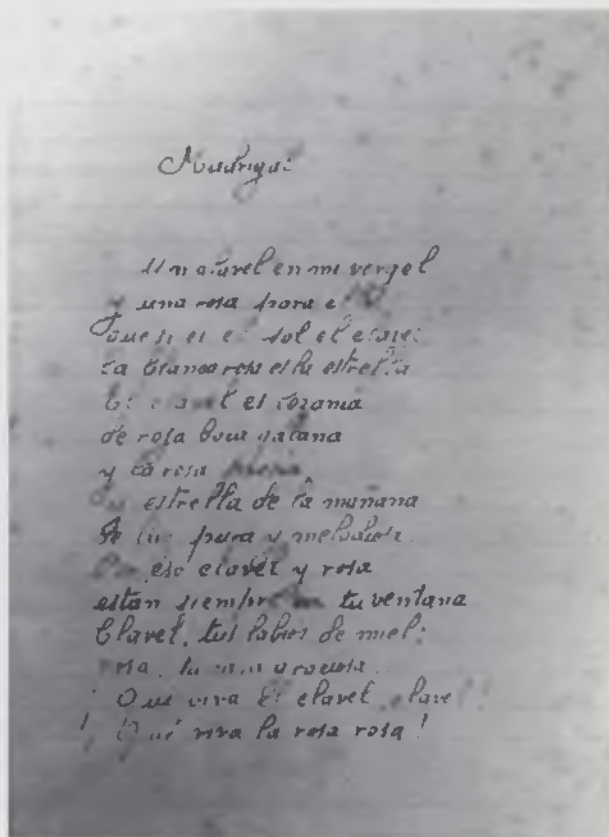 Madrigal
Un clavel en mi vergel
y una rosa para
que si es el sol el clavel
la blanca rosa es la estrella
clavel es
de roja boca galana
y la rosa
estrella de la mañana
de luz pura y melodiosa
Por eso clavel y rosa
estan siempre en tu ventana
Clavel, tus labios de miel;
rosa, tu
¡Que viva el clavel, clavel!
¡Qué viva la rosa rosa!